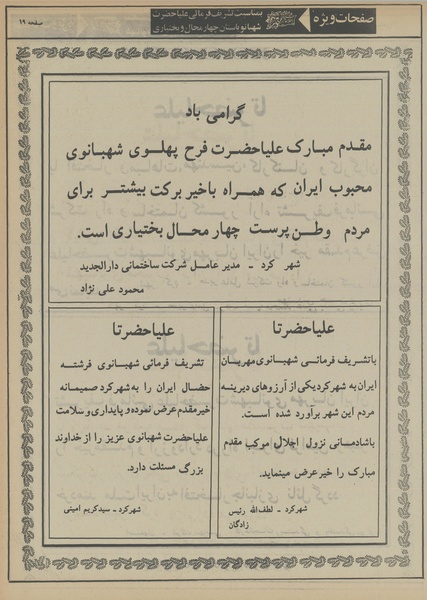 صفحات ویژه
بمناسبت تشریف فرمائی علیاحضرت
شهبانو باستان چهار محال و بختیاری
صفحه ۱۹
گرامی باد
مقدم مبارک علیاحضرت فرح پهلوی شهبانوی
محبوب ایران که همراه باخیر برکت بیشتر برای
مردم وطن پرست چهار محال بختیاری است.
شهر کرد - مدیر عامل شرکت ساختمانی دارالجدید
محمود علی نژاد
علیاحضرتا
باتشریف فرمائی شهبانوی مهربان
ایران به شهرکرد یکی از آرزوهای دیرینه
مردم این شهر برآورد شده است.
باشادمانی نزول اجلال موکب مقدم
مبارک را خیر عرض مینماید.
شهرکرد - لطف الله رئیس
زادگان
علیاحضرتا
تشریف فرمائی شهبانوی فرشته
خصال ایران را به شهرکرد صمیمانه
خیرمقدم عرض نموده و پایداری و سلامت
علیاحضرت شهبانوی عزیز را از خداوند
بزرگ مسئلت دارد.
شهرکرد - سید کریم امینی